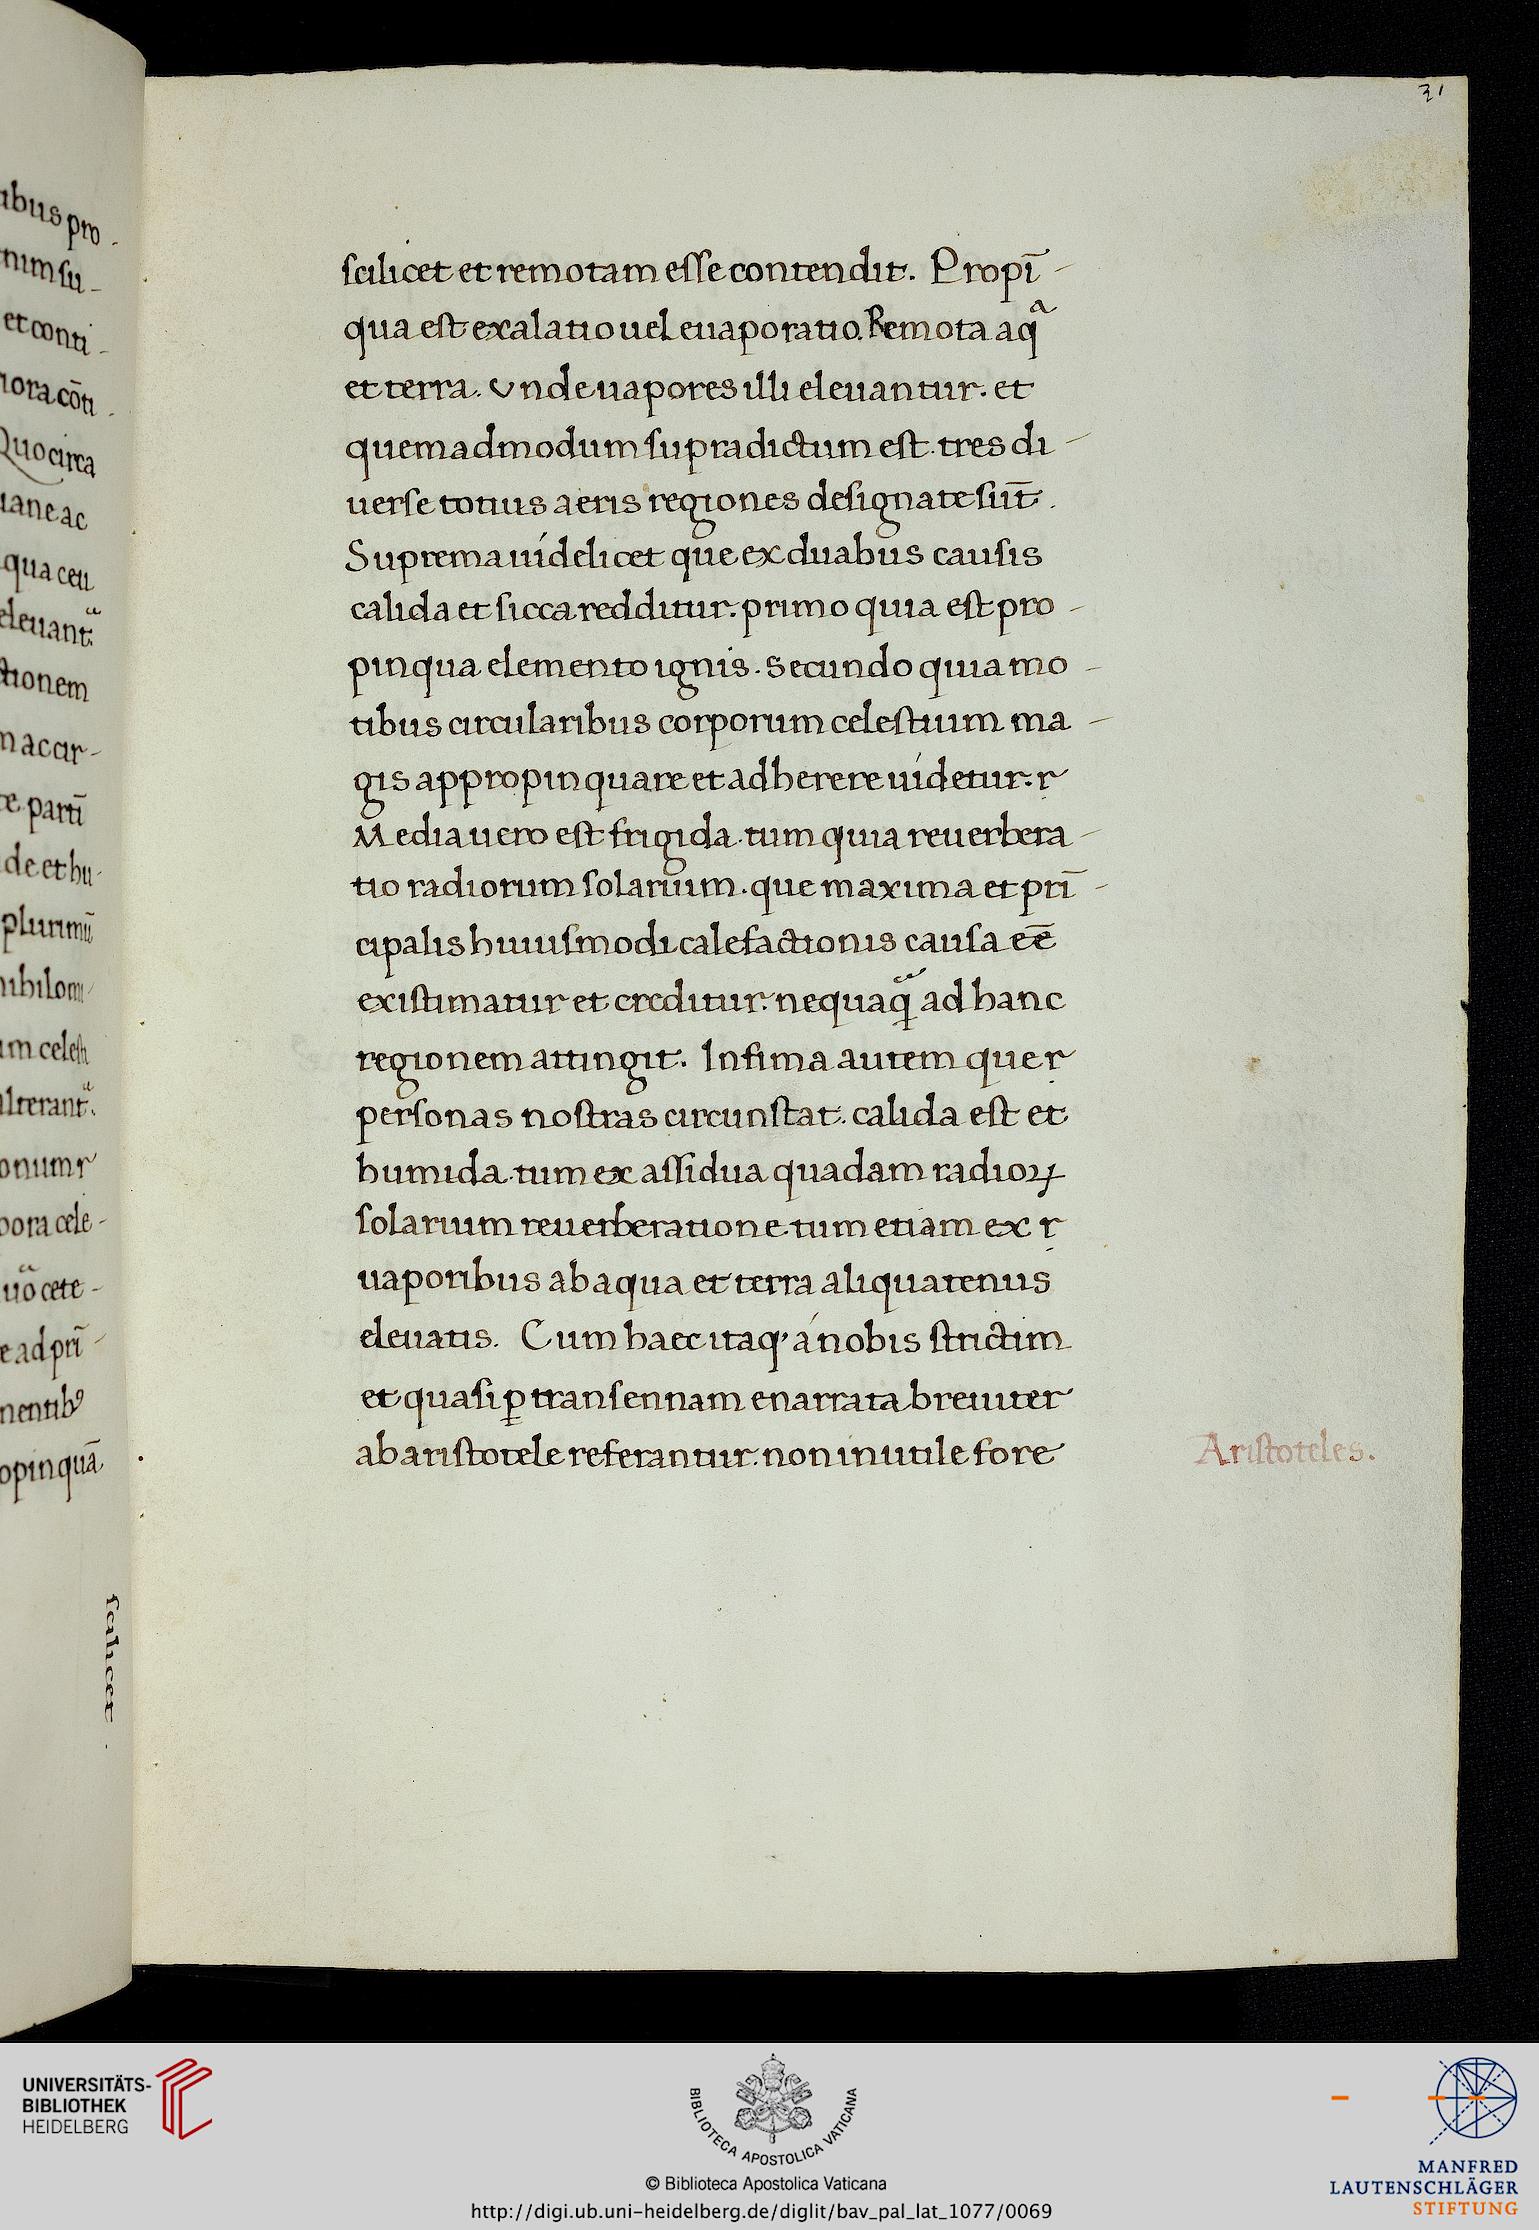 31
scilicet et remotam esse contendit. Propī-
qua est exalatio uel euaporatio. Remota aqͣ
et terra. vnde uapores illi eleuantur. et
quemadmodum supradictum est. tres di-
uerse totius aeris regiones designate sūt.
Suprema uidelicet que ex duabus causis
calida et sicca redditur. primo quia est pro-
pinqua elemento ignis. secundo quia mo-
tibus circularibus corporum celestium ma-
gis appropinquare et adherere uidetur. r
Media uero est frigida. tum quia reuerbera-
tio radiorum solarium. que maxima et prī-
cipalis huiusmodi calefactionis causa eē
existimatur et creditur. nequaqͣ ad hanc
regionem attingit. Infima autem que r
personas nostras circunstat. calida est et
humida. tum ex assidua quadam radioꝝ
solarium reuerberatione tum etiam ex r
uaporibus ab aqua et terra aliquatenus
eleuatis. Cum haec itaq' á nobis strictim
et quasi ꝑ transennam enarrata breuiter
ab aristotele referantur. non inutile fore
Aristoteles.
abus pro-
num su-
et conti-
iora cōti-
Quo circa
uane ac
qua ceu
eleuant͛
ctionem
m ac cir-
te partī
de et hu-
plurimū
nihilomi-
um celesti
alterant͛.
onum r
pora cele-
uō cete-
e ad prī-
nentibꝰ
opinquā
scilicet.
UNIVERSITÄTS-
BIBLIOTHEK
HEIDELBERG
BIBLIOTECA APOSTOLICA VATICANA
© Biblioteca Apostolica Vaticana
http://digi.ub.uni-heidelberg.de/diglit/bav_pal_lat_1077/0069
MANFRED
LAUTENSCHLÄGER
STIFTUNG